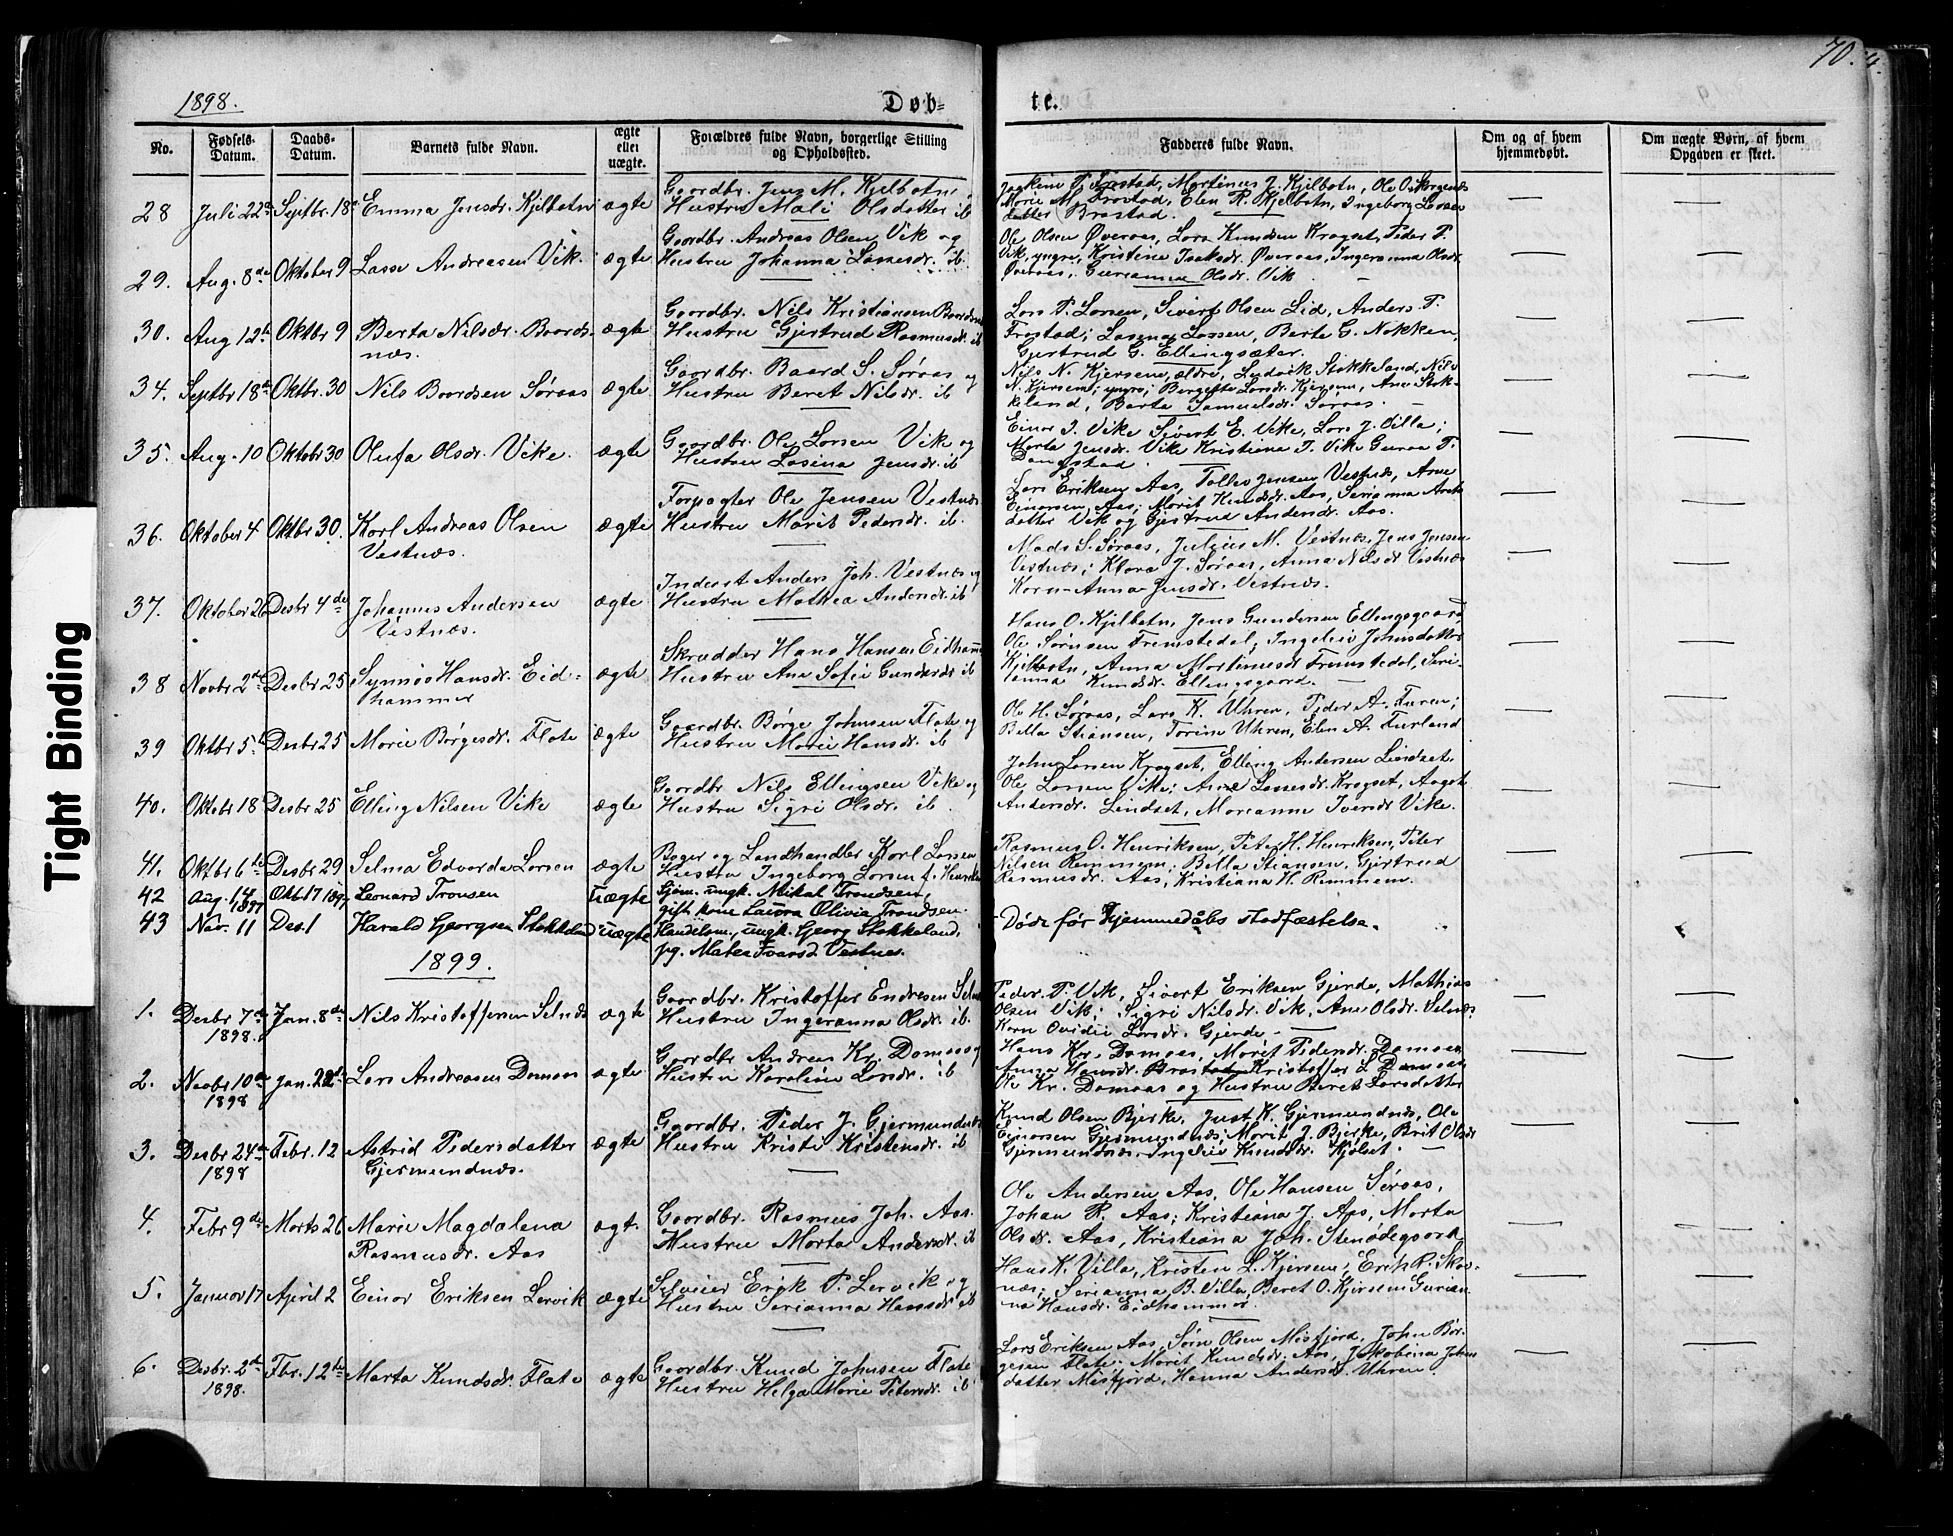 70.
1898.
Døb=
te.
No.
Fødsels-
Datum.
Daabs-
Datum.
Barnets fulde Navn.
ægte
eller
uægte.
Forældres fulde Navn, borgerlige Stilling
og Opholdssted.
Fadderes fulde Navn.
Om og af hvem
hjemmedøbt.
Om uægte Børn, af hvem
Opgaven er skeet.
28 Juli 22de Septbr. 18de Emma Jensdr. Kjelbotn ægte
Gaardbr. Jens M. Kjelbotn
Hustru Mali Olsdatter ib
Frostad, Martinus J. Kjelbotn, Ole
Marie M. Frostad, Elen R. Kjelbotn, Ingeborg
datter Brastad.
29. Aug. 8de Oktober 9 Lasse Andreasen Vik. ægte
Gaardbr. Andreas Olsen Vik og
Hustru Johanna Lassesdr. ib.
Ole Olsen Øveraas, Lars Knudsen Kragset, Peder P.
Vik, yngre, Kristine Isaksdr. Øveraas, Ingeranna Olsdr.
Øveraas, Gurianna Olsdr. Vik
30. Aug 12te Oktbr 9 Berta Nilsdr. Baards- ægte
næs.
Gaardbr. Nils Kristiansen Baardsnæs
Hustru Gjertrud Rasmusdr. ib
Lars P. Larsen, Sivert Olsen Lid, Anders T.
Frostad; Lasina Larsen, Berte G. Nakken,
Gjertrud G. Ellingsæter.
34. Septbr 18de Oktbr. 30 Nils Baardsen Søraas ægte
Gaardbr. Baard S. Søraas og
Hustru Beret Nilsdr. ib
Nils N. Kjersem, ældre, Ludvik Stokkeland, Nils
N. Kjersem, yngre; Bergitte Larsdr. Kjersem, Ane Stok-
keland, Berta Samuelsdr. Søraas.
35. Aug. 10 Oktbr 30 Olufa Olsdr. Vike. ægte
Gaardbr. Ole Larsen Vike og
Hustru Lasina Jensdr. ib
Einar I. Vike, Sivert E. Vike, Lars J. Villa;
Marta Jensdr. Vike Kristiana T. Vike Guroa T.
Daugstad.
36. Oktober 4 Oktbr 30. Karl Andreas Olsen ægte
Vestnæs.
Forpagter Ole Jensen Vestnæs
Hustru Marit Pedersdr. ib.
Lars Eriksen Aas, Tolles Jensen Vestnæs, Arne
Einarsen, Aas; Marit Knudsdr. Aas, Serianna
datter Vik og Gjertrud Andersdr. Aas.
37. Oktober 26 Desbr 4de Johannes Andersen ægte
Vestnæs.
Inderst Anders Joh. Vestnæs og
Hustru Mathea Andersdr. ib
Mads S. Søraas, Julius M. Vestnæs, Jens Jensen
Vestnæs; Klara J. Søraas, Anna Nilsdr Vestnæs
Karn-Anna Jensdr. Vestnæs.
38 Novbr 2de Desbr 25 Synnøv Hansdr. Eid- ægte
hammer
Skrædder Hans Hansen Eidhammer
Hustru Ane Sofie Gundersdr ib
Hans O. Kjelbotn, Jens Gundersen Ellingsgaard,
Ole Sørnsen Fremstedal, Ingelei Johnsdatter
Kjelbotn, Anna Martinusdr Fremstedal, Seri-
anna Knudsdr. Ellingsgaard.
39 Oktbr 5te Desbr 25 Marie Børgesdr. Flate ægte
Gaardbr. Børge Johnsen Flate og
Hustru Marie Hansdr. ib
Ole H. Søraas, Lars K. Uhren, Peder A. Furen;
Bella Stiansen, Torine Uhren, Elen A. Furland
40. Oktobr 18 Desbr 25 Elling Nilsen Vike ægte
Gaardbr Nils Ellingsen Vike og
Hustru Sigri Olsdr. ib
John Larsen Kragset, Elling Andersen Lindset.
Ole Larsen Vike; Ane Lassesdr. Kragset, Aagot
Andersdr. Lindset, Marianne Iversdr Vike.
41. Oktbr 6te Desbr 29 Selma Edvarda Larsen ægte
Bager og Landhandler Karl Larsen
Hustru Ingeborg Larsen f. Henriksen
Rasmus O. Henriksen, Peter H. Henriksen, Peter
Nilsen Remmem; Bella Stiansen, Gjertrud
Rasmusdr. Aas, Kristiana H. Remmem.
42 Aug. 14 1897 Okt 17 1897 Leonard Tronsen uægte
Sjøm. ungk. Mikal Trondsen,
gift kone Laura Olivia Trondsen.
43 Nov. 11 Des. 1 Harald Georgsen Stokkeland uægte
Handelsm., ungk. Georg Stokkeland,
pg. Matea Ivarsd. Vestnes.
Døde før Hjemmedåbs stadfæstelse.
1899.
1. Desbr 7de Jan. 8de Nils Kristoffersen Selnes ægte
1898.
Gaardbr. Kristoffer Endresen
Hustru Ingeranna Olsdr. ib.
Peder P. Vik, Sivert Eriksen Gjerde, Mathias
Olsen Vik; Sigri Nilsdr. Vik, Ane Olsdr. Selnæs
Karn Ovidie Larsdr. Gjerde
2. Novbr 10de Jan. 22de Lars Andreasen Damaas ægte
1898
Gaardbr Andreas Kr. Damaas og
Hustru Karoline Larsdr. ib
Hans Kr. Damaas, Marit Pedersdr. Damaas
Anna Hansdr. Brastad Kristoffer L Damaas
Ole Kr. Damaas og Hustru Beret Larsdatter
3. Desbr 24de Febr. 12 Astrid Pedersdatter ægte
1898 Gjermundnæs.
Gaardbr. Peder J. Gjermundnæs
Hustru Kristi Kristensdr. ib
Knud Olsen Bjerke, Just K. Gjermundnæs, Ole
Einarsen Gjermundnæs; Marit J. Bjerke, Brit Olsdr
Gjermundnæs, Ingelei Knudsdr. Hjelset.
4. Febr 9de Marts 26 Marie Magdalena ægt.
Rasmusdr. Aas
Gaardbr. Rasmus Joh. Aas.
Hustru Marta Andersdr. ib
Ole Andersen Aas, Ole Hansen Søraas,
Johan R. Aas; Kristiana J. Aas, Marta
Olsdr. Aas, Kristiana Joh. Stenødegaard
5. Januar 17 April 2 Einar Eriksen Lervik ægte
Selveier Erik P. Lervik og
Hustru Serianna Hansdr ib
Hans K. Villa, Kristen L. Kjersem; Erik R. Skor-
næs; Serianna B. Villa, Beret O. Kjersem Gurian-
na Hansdr. Eidhammer.
6. Desbr. 2de Fbr. 12te Marta Knudsdr. Flate ægte
1898.
Gaardbr. Knud Johnsen Flate
Hustru Helga Marie Petersdr. ib
Lars Eriksen Aas, Søvn Olsen Misfjord, John Bør-
gesen Flate; Maret Knudsdr. Aas, Jakobina Johns
datter Misfjord, Hanna Andersdr. Uhren.
Tight Binding